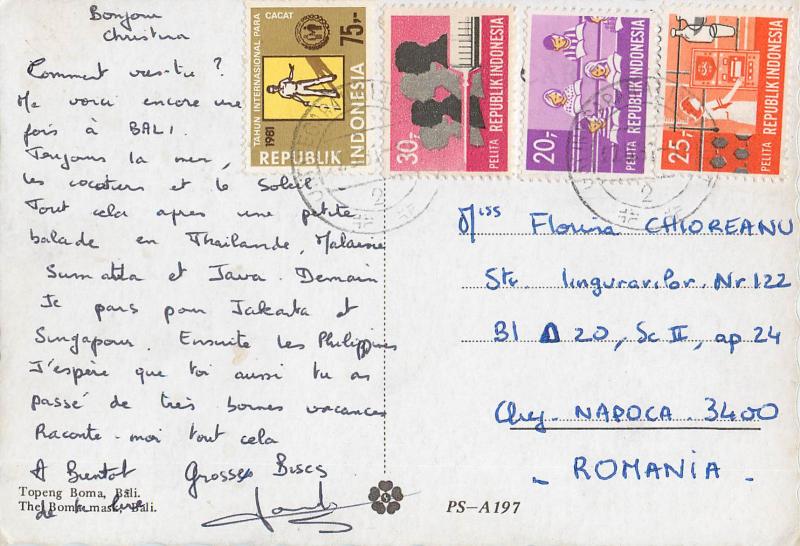 Bonjour
Christina
Comment vas-tu ?
Me voici encore une
fois à BALI.
Toujours la mer,
les cocotiers et le Soleil
Tout cela après une petite
balade en Thaïlande, Malaisie
Sumatra et Java. Demain
Je pars pour Jakarta et
Singapour. Ensuite les Philippines
J'espère que toi aussi tu as
passé de très bonnes vacances
Raconte-moi tout cela
A Bientot Grosses Bises
de te lire
Topeng Boma, Bali.
The Boma mask, Bali.
PS-A197
TAHUN INTERNASIONAL PARA CACAT
75,-
1981
REPUBLIK INDONESIA
30,-
PELITA REPUBLIK INDONESIA
20,-
PELITA REPUBLIK INDONESIA
25,-
PELITA REPUBLIK INDONESIA
2
2
Miss Florina CHIOREANU
Str lingurarilor Nr 122
Bl Δ 20, Sc II, ap 24
Cluj NAPOCA 3400
- ROMANIA -